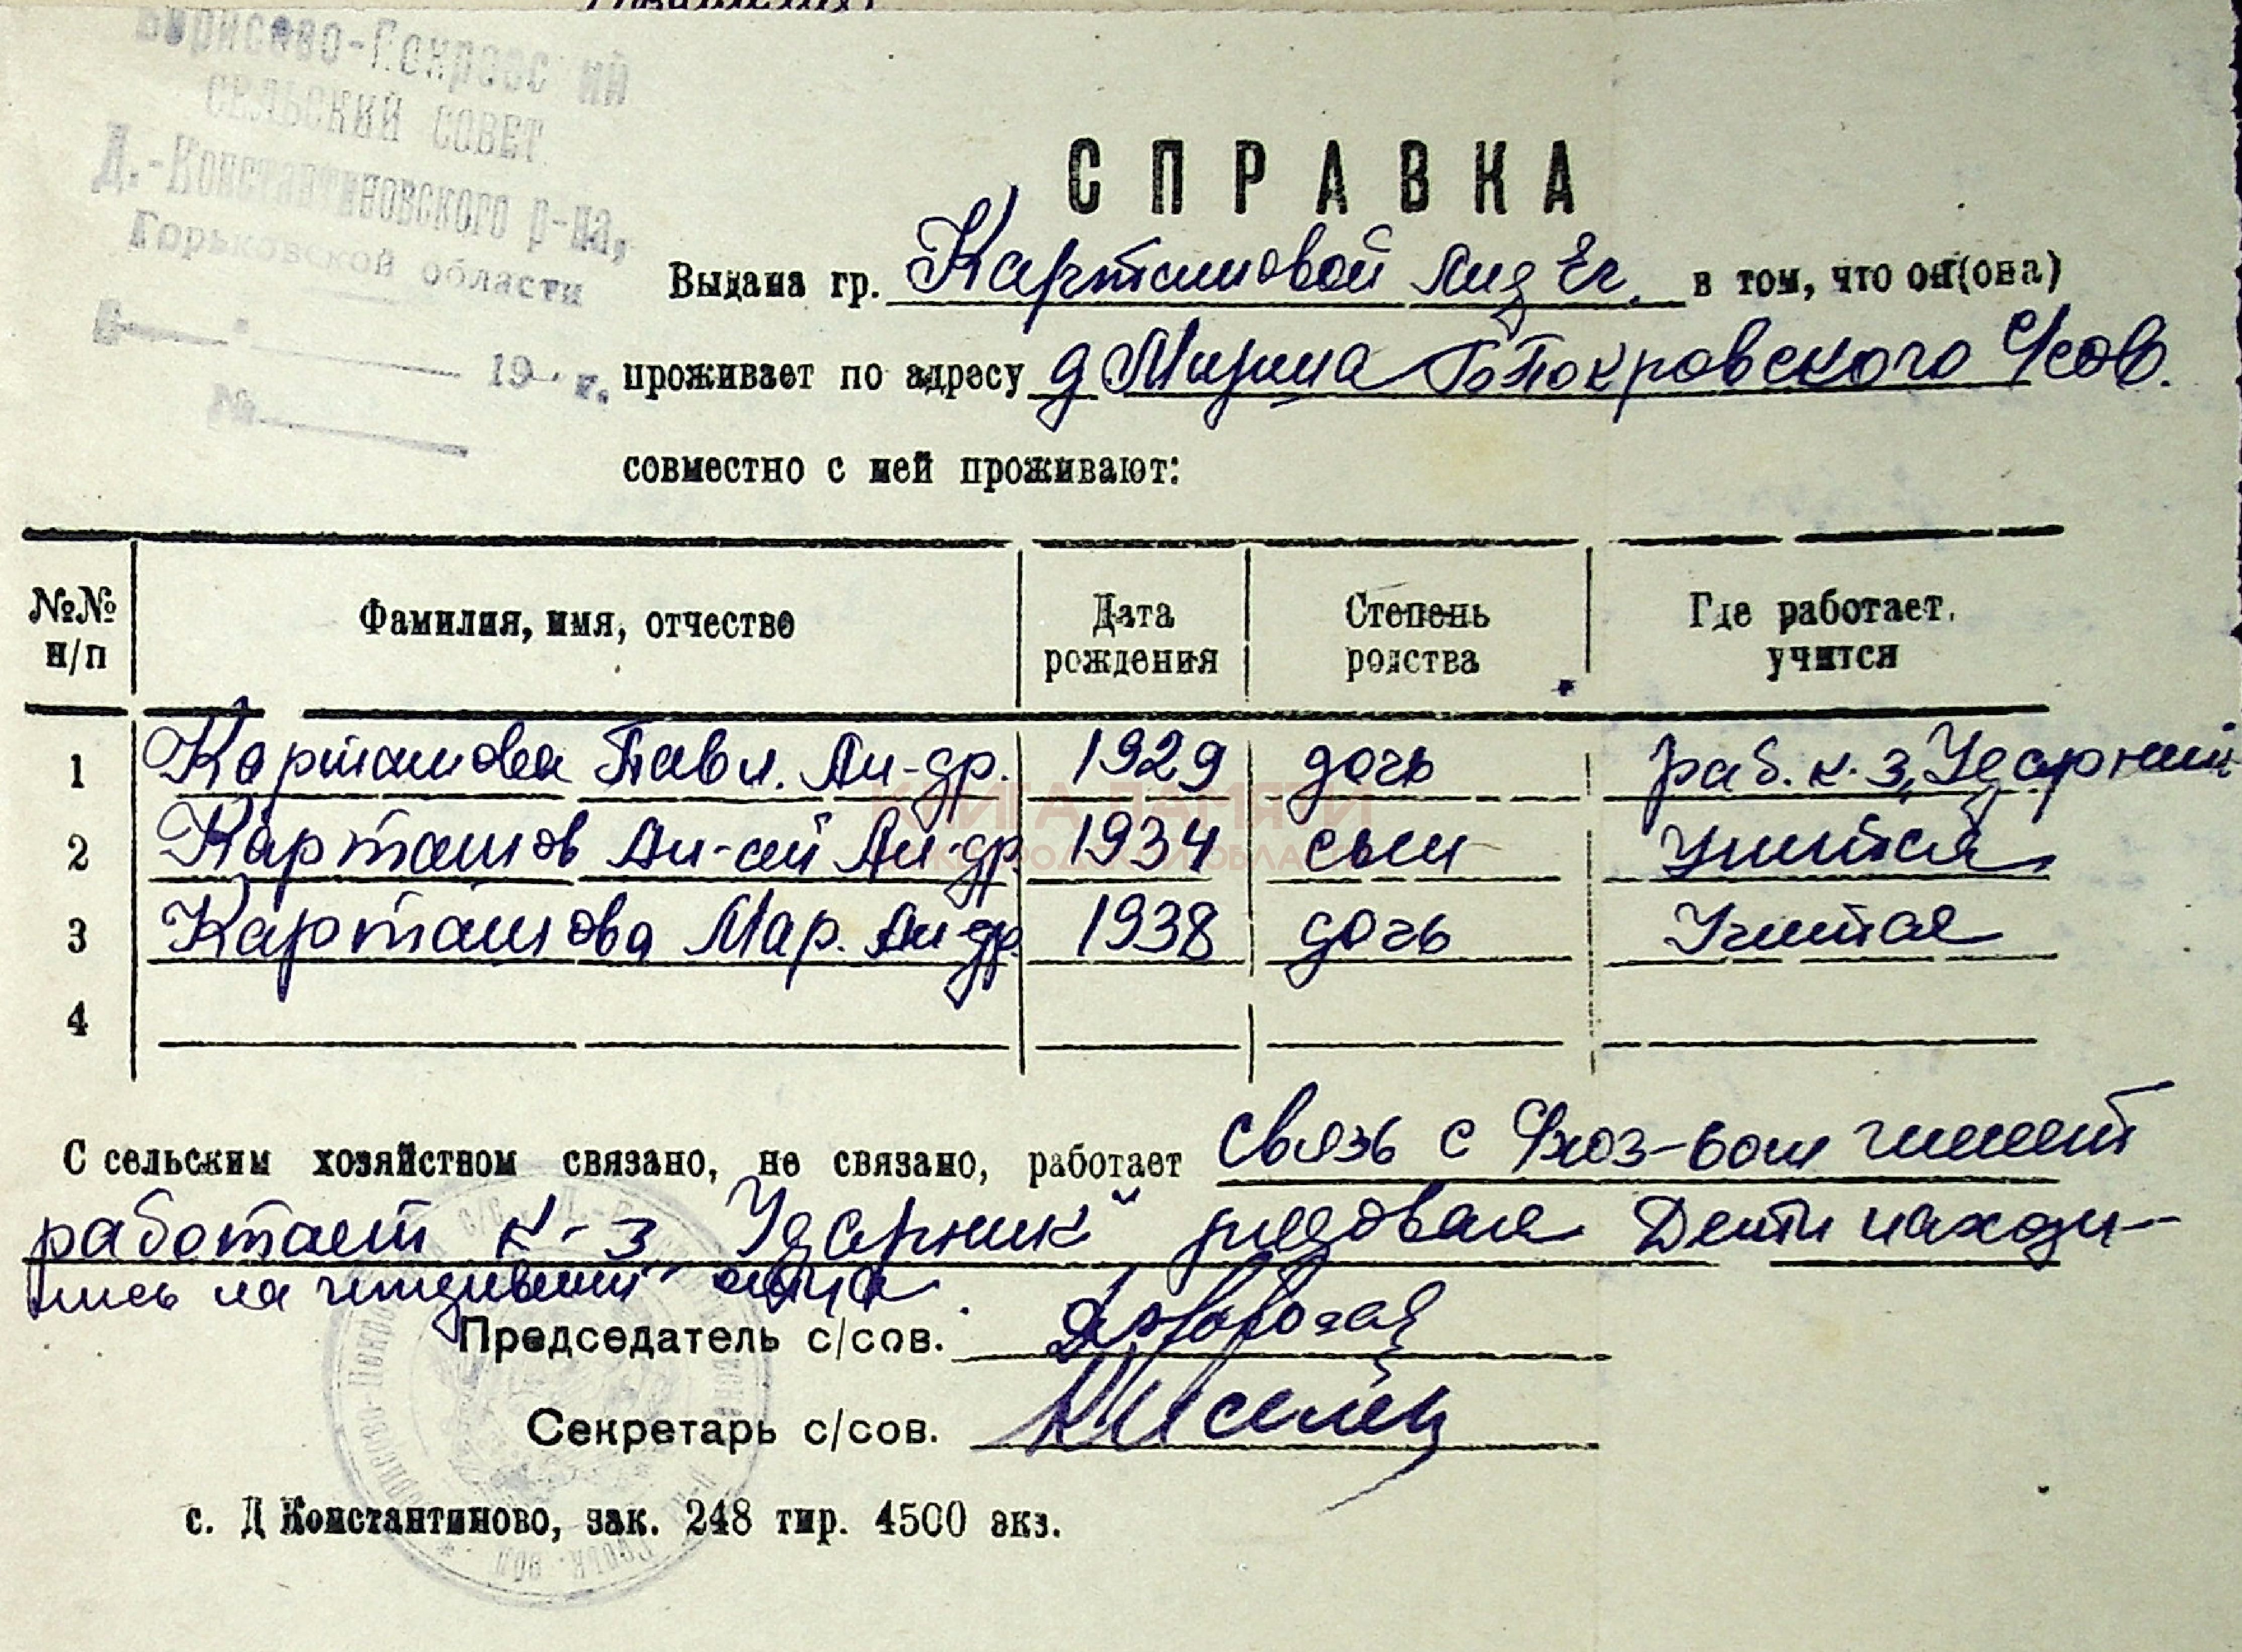 Борисово-Покровский
сельский совет
Д.-Константиновского р-на,
Горьковской области
19 г.
№
СПРАВКА
Выдана гр. Карташовой Лид Ег. в том, что он(она)
проживает по адресу д Мизина Б Покровского С/сов.
совместно с ней проживают:
№№ н/п Фамилия, имя, отчество Дата рождения Степень родства Где работает, учится
1 Карташова Павл. Ан-др. 1929 дочь раб. к-з „Ударник
2 Карташов Ан-ий Ан-др. 1934 сын Учится
3 Карташова Мар. Ан-др. 1938 дочь Учится
4
КНИГА ПАМЯТИ
НИЖЕГОРОДСКОЙ ОБЛАСТИ
С сельским хозяйством связано, не связано, работает связь с С/хоз-вом имеет
работает к-з Ударник" рядовая Дети находи-
лись на иждивении отца
Председатель с/сов.
Секретарь с/сов.
с. Д Константиново, зак. 248 тир. 4500 экз.